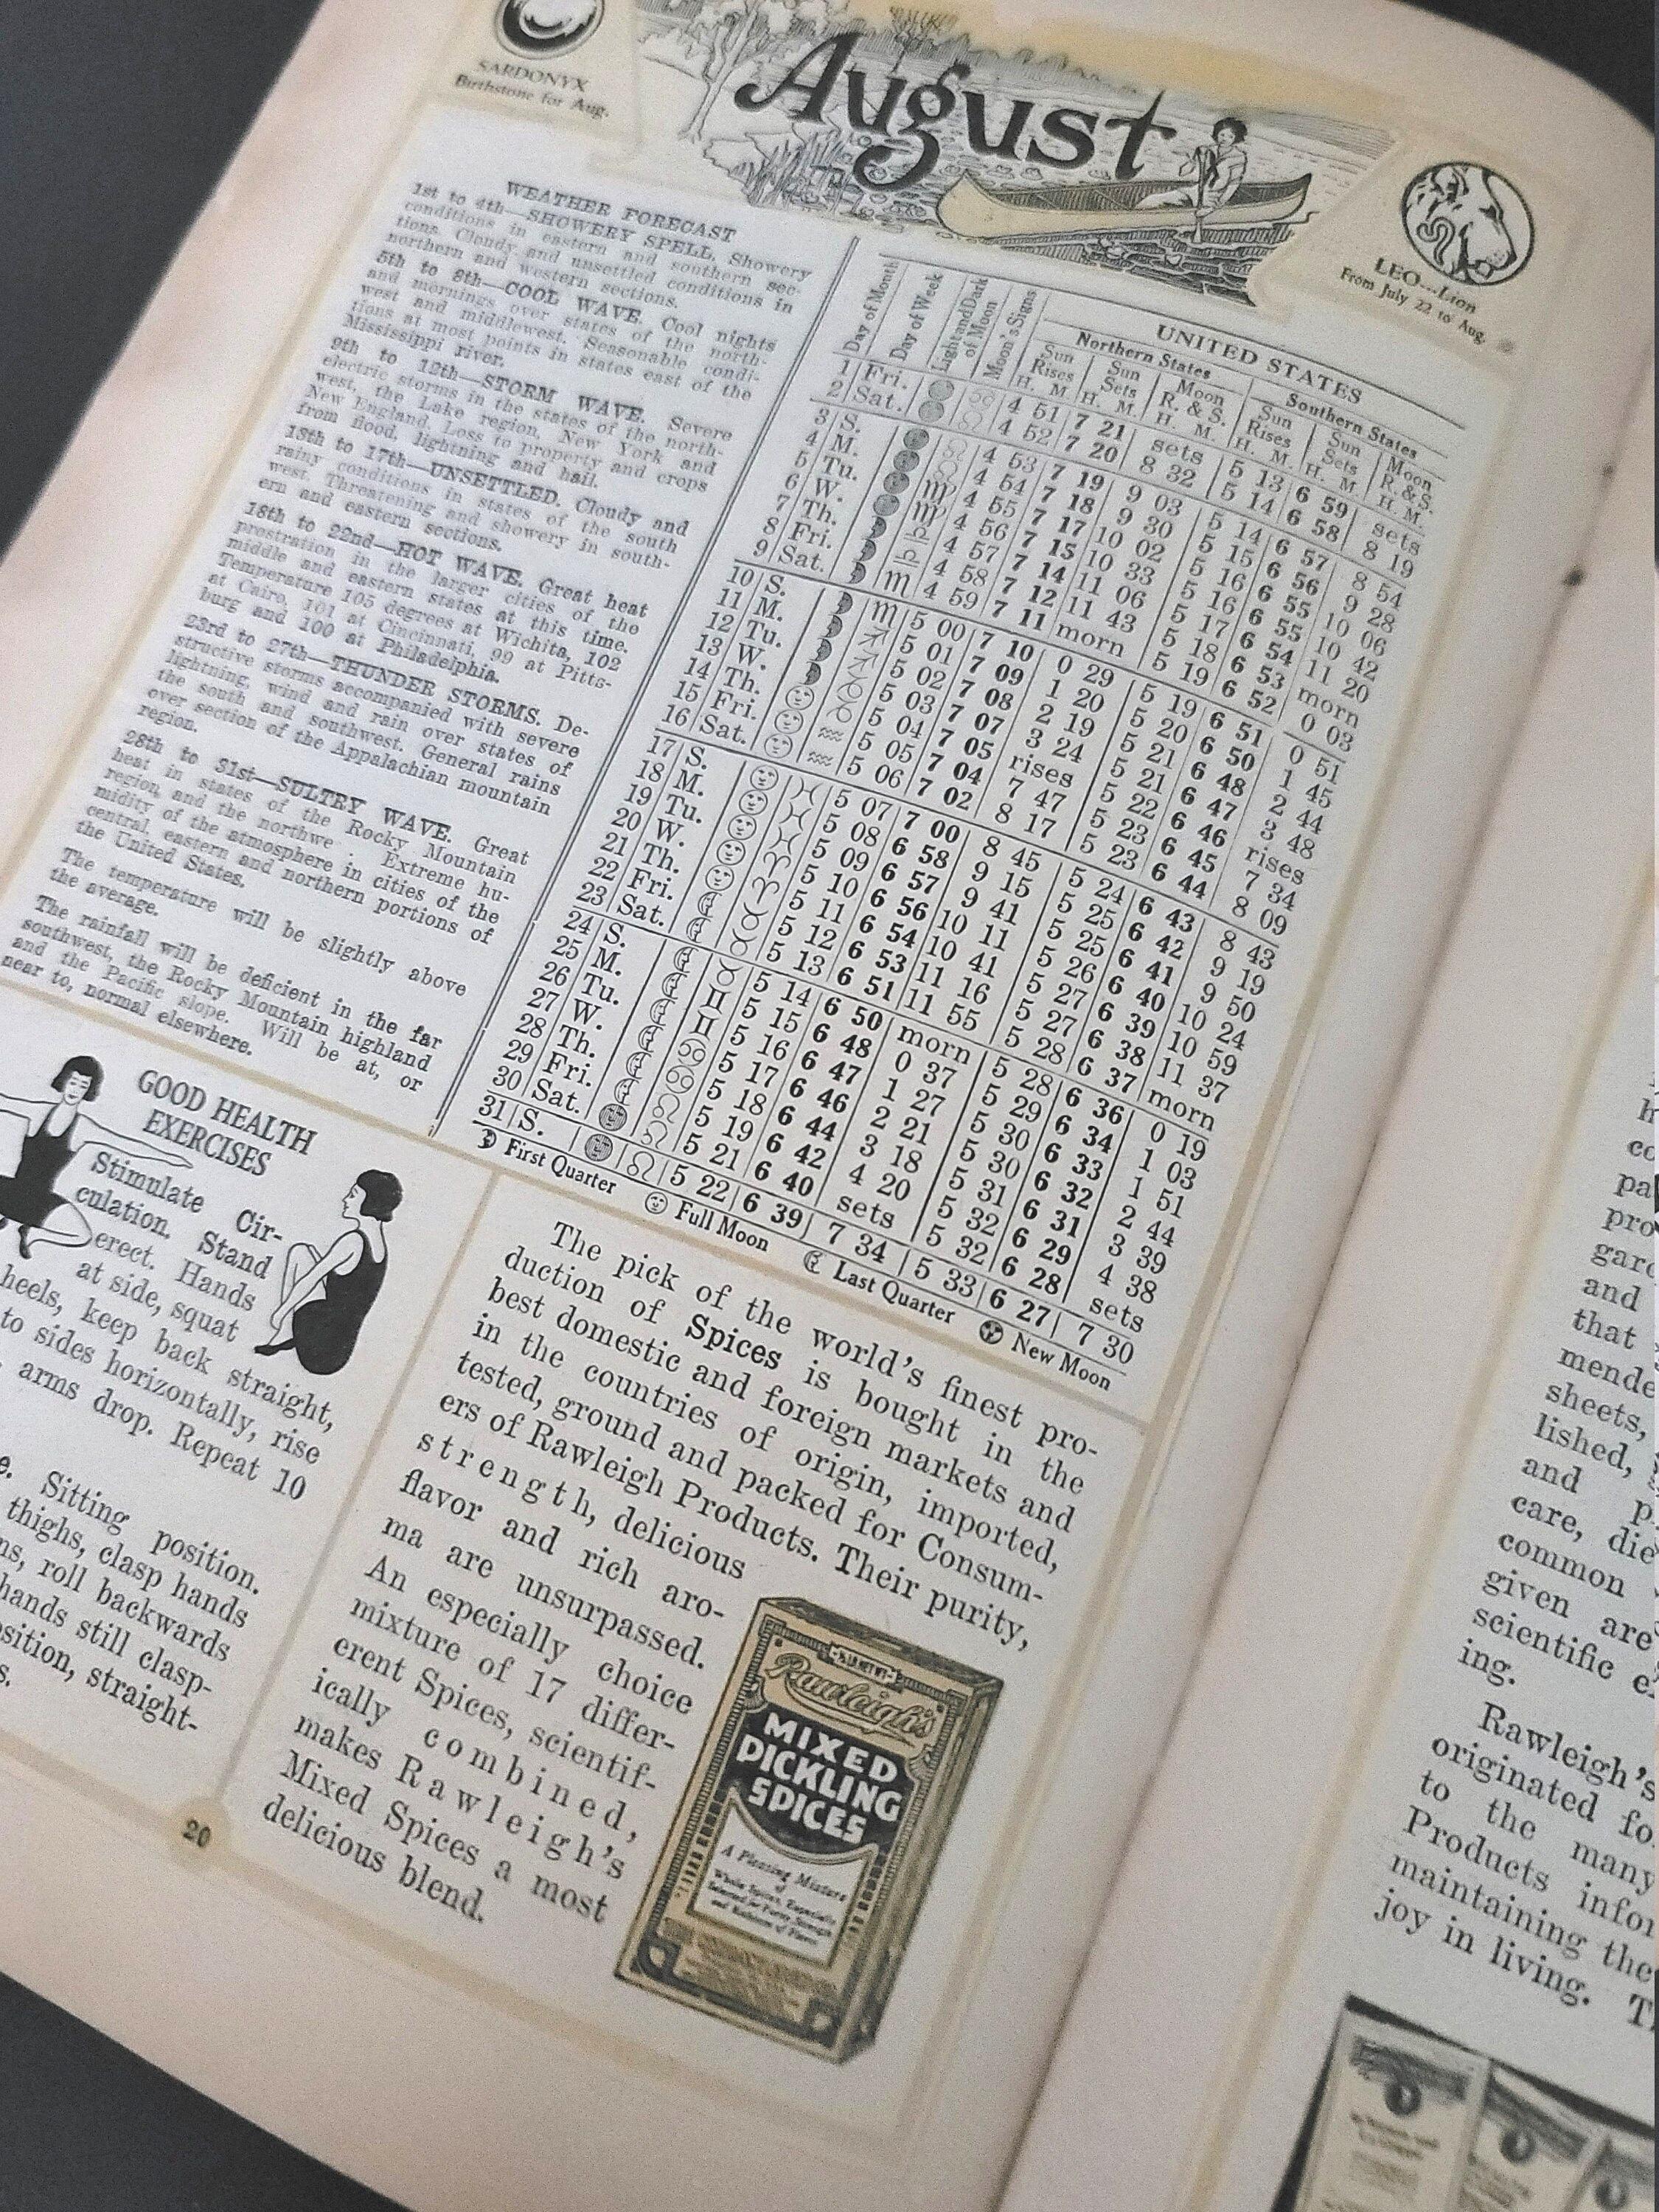 August
SARDONYX
Birthstone for Aug.
LEO---Lion
From July 22 to Aug.
WEATHER FORECAST
1st to 4th—SHOWERY SPELL. Showery
conditions in eastern and southern sec-
tions. Cloudy and unsettled conditions in
northern and western sections.
5th to 8th—COOL WAVE. Cool nights
and mornings over states of the north-
west and middlewest. Seasonable condi-
tions at most points in states east of the
Mississippi river.
9th to 12th—STORM WAVE. Severe
electric storms in the states of the north-
west, the Lake region, New York and
New England. Loss to property and crops
from flood, lightning and hail.
13th to 17th—UNSETTLED. Cloudy and
rainy conditions in states of the south
west. Threatening and showery in south-
ern and eastern sections.
18th to 22nd—HOT WAVE. Great heat
prostration in the larger cities of the
middle and eastern states at this time.
Temperature 105 degrees at Wichita, 102
at Cairo, 101 at Cincinnati, 99 at Pitts-
burg and 100 at Philadelphia.
23rd to 27th—THUNDER STORMS. De-
structive storms accompanied with severe
lightning, wind and rain over states of
the south and southwest. General rains
over section of the Appalachian mountain
region.
28th to 31st—SULTRY WAVE. Great
heat in states of the Rocky Mountain
region and the northwe . Extreme hu-
midity of the atmosphere in cities of the
central, eastern and northern portions of
the United States.
The temperature will be slightly above
the average.
The rainfall will be deficient in the far
southwest, the Rocky Mountain highland
and the Pacific slope. Will be at, or
near to, normal elsewhere.
Day of Month Day of Week Light and Dark of Moon Moon's Signs UNITED STATES
Northern States Southern States
Sun Rises Sun Sets Moon R. & S. Sun Rises Sun Sets Moon R. & S.
H. M. H. M. H. M. H. M. H. M. H. M.
1 Fri. ♋ 4 51 7 21 sets 5 13 6 59 sets
2 Sat. ♌ 4 52 7 20 8 32 5 14 6 58 8 19
3 S. ♌ 4 53 7 19 9 03 5 14 6 57 8 54
4 M. ♌ 4 54 7 18 9 30 5 15 6 56 9 28
5 Tu. ♍ 4 55 7 17 10 02 5 16 6 55 10 06
6 W. ♍ 4 56 7 15 10 33 5 16 6 55 10 42
7 Th. ♎ 4 57 7 14 11 06 5 17 6 54 11 20
8 Fri. ♎ 4 58 7 12 11 43 5 18 6 53 morn
9 Sat. ♏ 4 59 7 11 morn 5 19 6 52 0 03
10 S. ♏ 5 00 7 10 0 29 5 19 6 51 0 51
11 M. ♐ 5 01 7 09 1 20 5 20 6 50 1 45
12 Tu. ♐ 5 02 7 08 2 19 5 21 6 48 2 44
13 W. ♑ 5 03 7 07 3 24 5 21 6 47 3 48
14 Th. ♑ 5 04 7 05 rises 5 22 6 46 rises
15 Fri. ♒ 5 05 7 04 7 47 5 23 6 45 7 34
16 Sat. ♒ 5 06 7 02 8 17 5 23 6 44 8 09
17 S. ♓ 5 07 7 00 8 45 5 24 6 43 8 43
18 M. ♓ 5 08 6 58 9 15 5 25 6 42 9 19
19 Tu. ♓ 5 09 6 57 9 41 5 25 6 41 9 50
20 W. ♈ 5 10 6 56 10 11 5 26 6 40 10 24
21 Th. ♈ 5 11 6 54 10 41 5 27 6 39 10 59
22 Fri. ♉ 5 12 6 53 11 16 5 27 6 38 11 37
23 Sat. ♉ 5 13 6 51 11 55 5 28 6 37 morn
24 S. ♉ 5 14 6 50 morn 5 28 6 36 0 19
25 M. ♊ 5 15 6 48 0 37 5 29 6 34 1 03
26 Tu. ♊ 5 16 6 47 1 27 5 30 6 33 1 51
27 W. ♋ 5 17 6 46 2 21 5 30 6 32 2 44
28 Th. ♋ 5 18 6 44 3 18 5 31 6 31 3 39
29 Fri. ♌ 5 19 6 42 4 20 5 32 6 29 4 38
30 Sat. ♌ 5 21 6 40 sets 5 32 6 28 sets
31 S. ♌ 5 22 6 39 7 34 5 33 6 27 7 30
First Quarter Full Moon Last Quarter New Moon
GOOD HEALTH
EXERCISES
Stimulate Cir-
culation. Stand
erect. Hands
at side, squat
heels, keep back straight,
to sides horizontally, rise
arms drop. Repeat 10
Sitting position.
thighs, clasp hands
roll backwards
hands still clasp-
straight-
The pick of the world's finest pro-
duction of Spices is bought in the
best domestic and foreign markets and
in the countries of origin, imported,
tested, ground and packed for Consum-
ers of Rawleigh Products. Their purity,
strength, delicious
flavor and rich aro-
ma are unsurpassed.
An especially choice
mixture of 17 differ-
erent Spices, scientif-
ically combined,
makes Rawleigh's
Mixed Spices a most
delicious blend.
Rawleigh's
MIXED
PICKLING
SPICES
A Pleasing Mixture
of
Whole Spices, Especially
Selected for Purity, Strength
and Richness of Flavor
20
and
that
sheets,
and
care,
common
given are
scientific
ing.
Rawleigh's
originated
to the many
Products
maintaining the
joy in living.